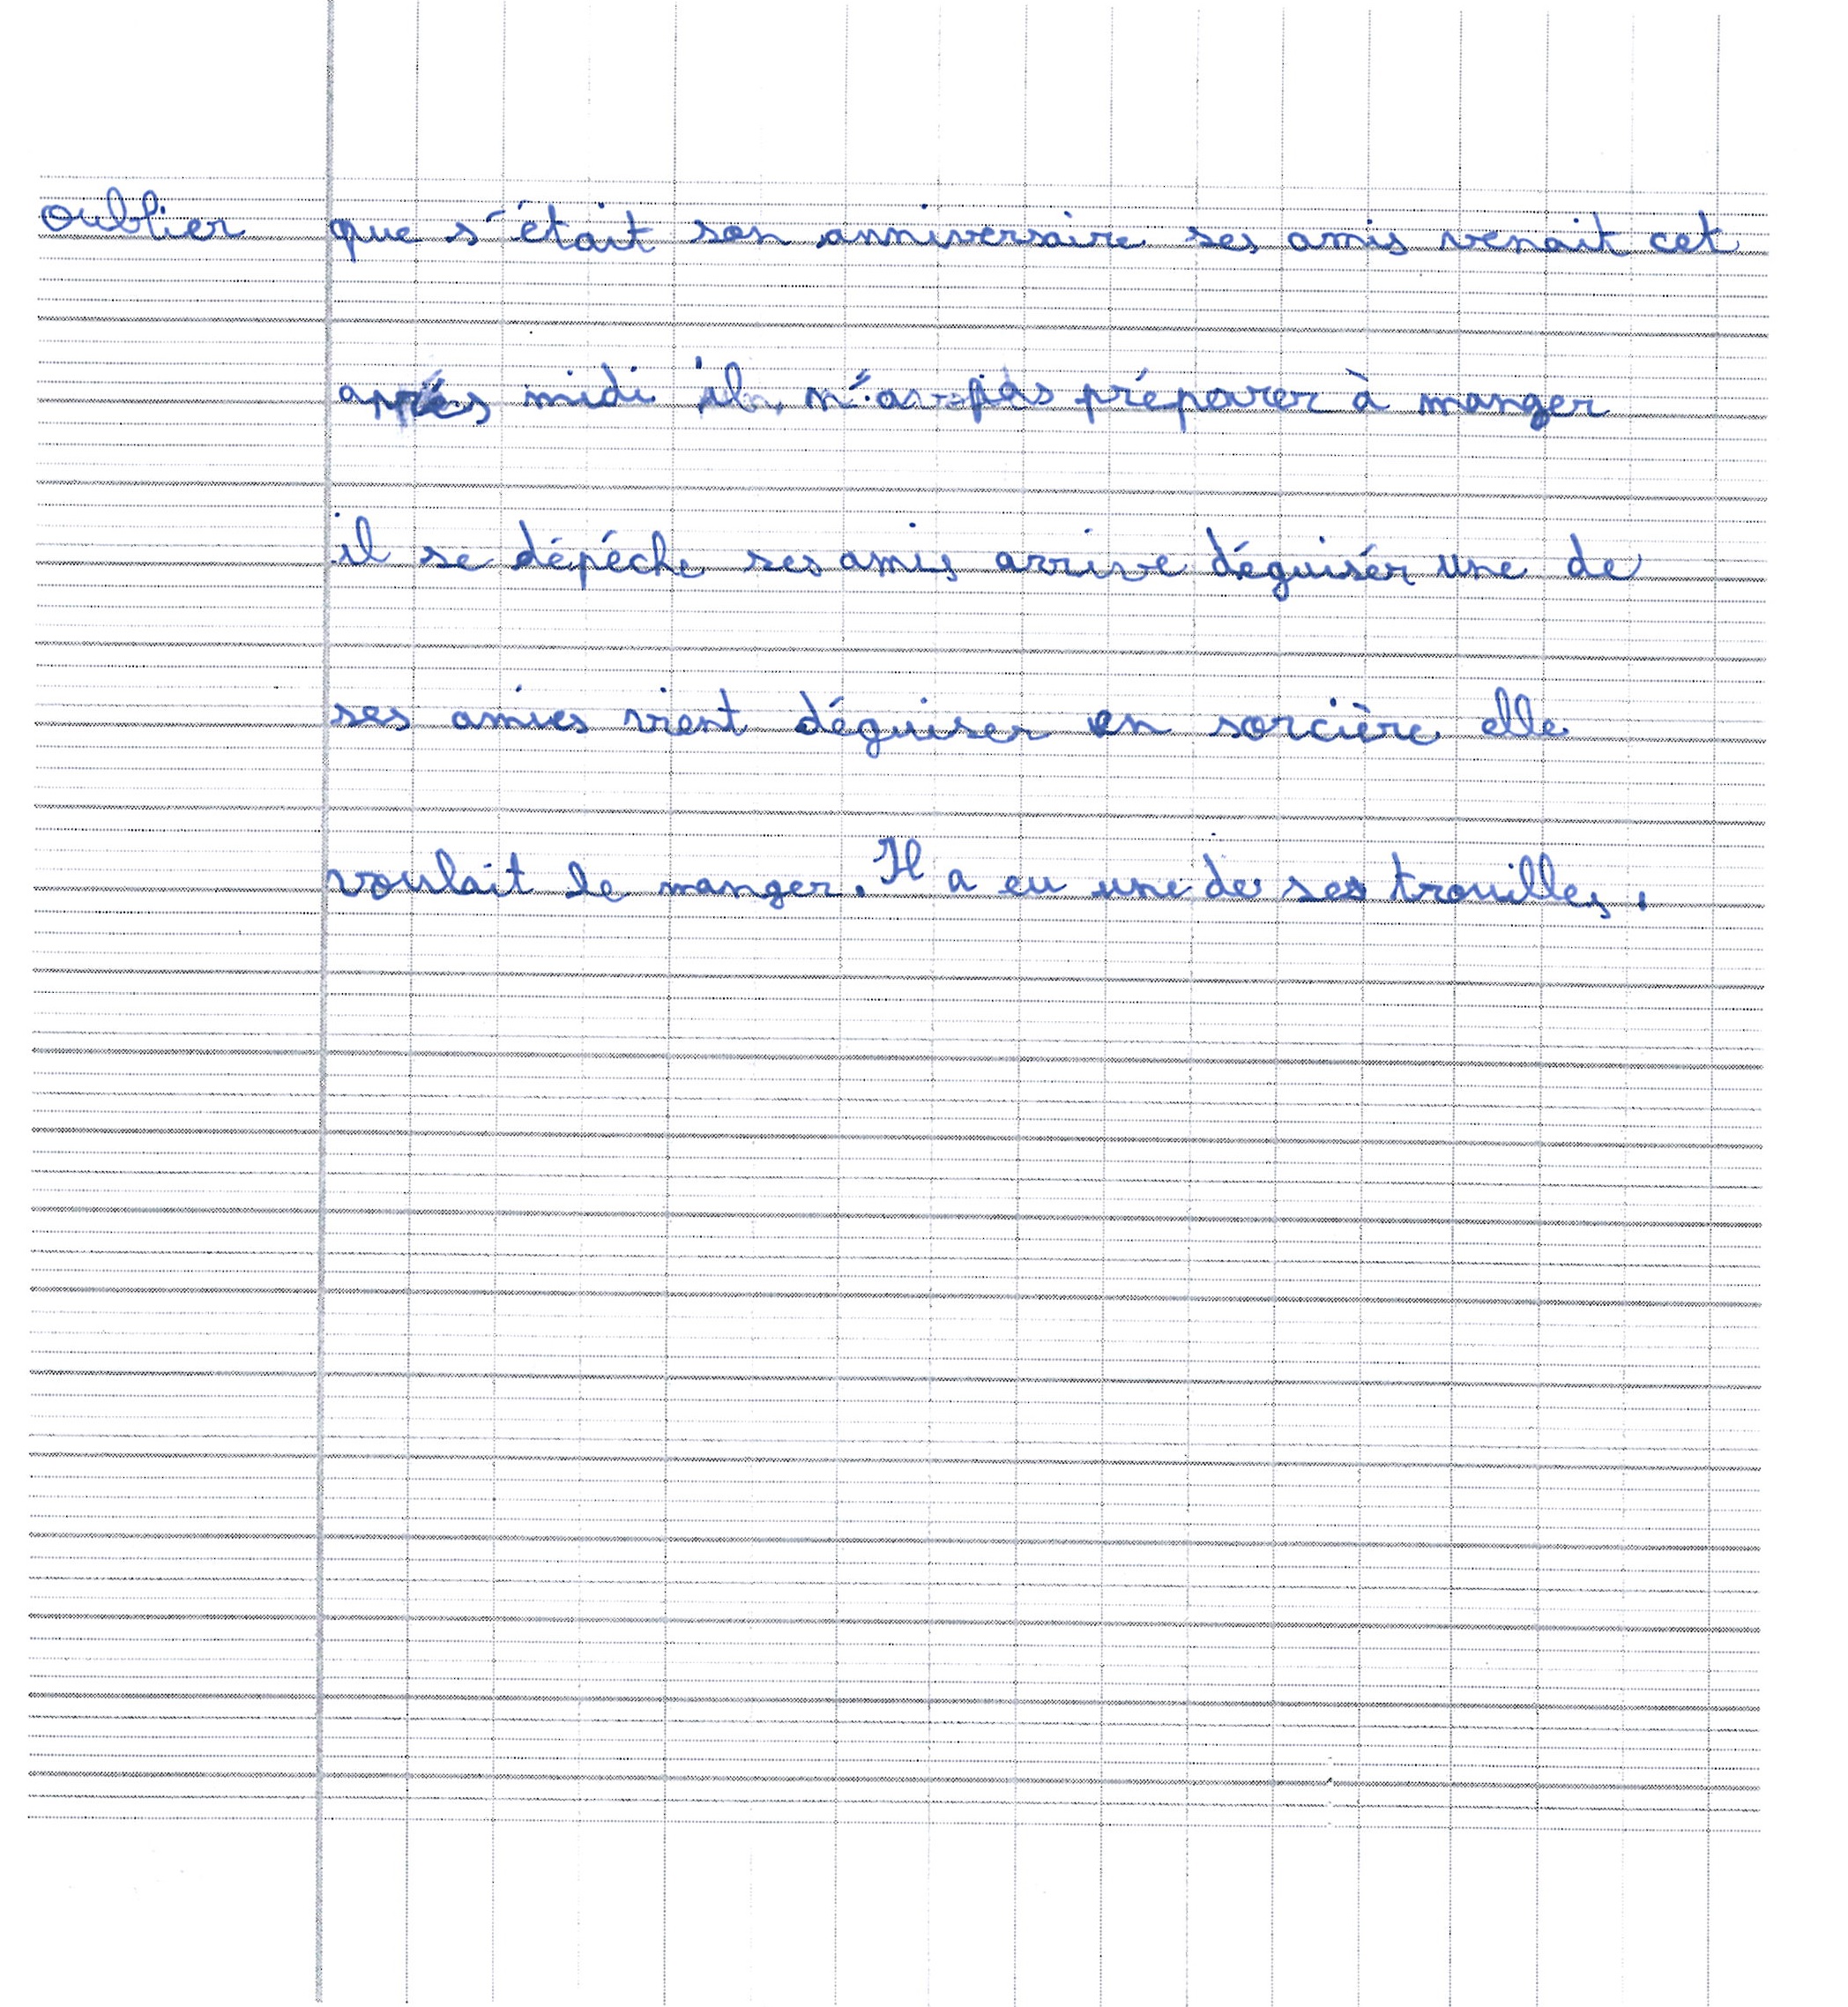 oublier que s'était son anniversaire ses amis venait cet
après midi il n'a pas préparer à manger
il se dépéche ses amis arrive déguisér une de
ses amies vient déguiser en sorcière elle
voulait le manger. Il a eu une de ses trouilles.